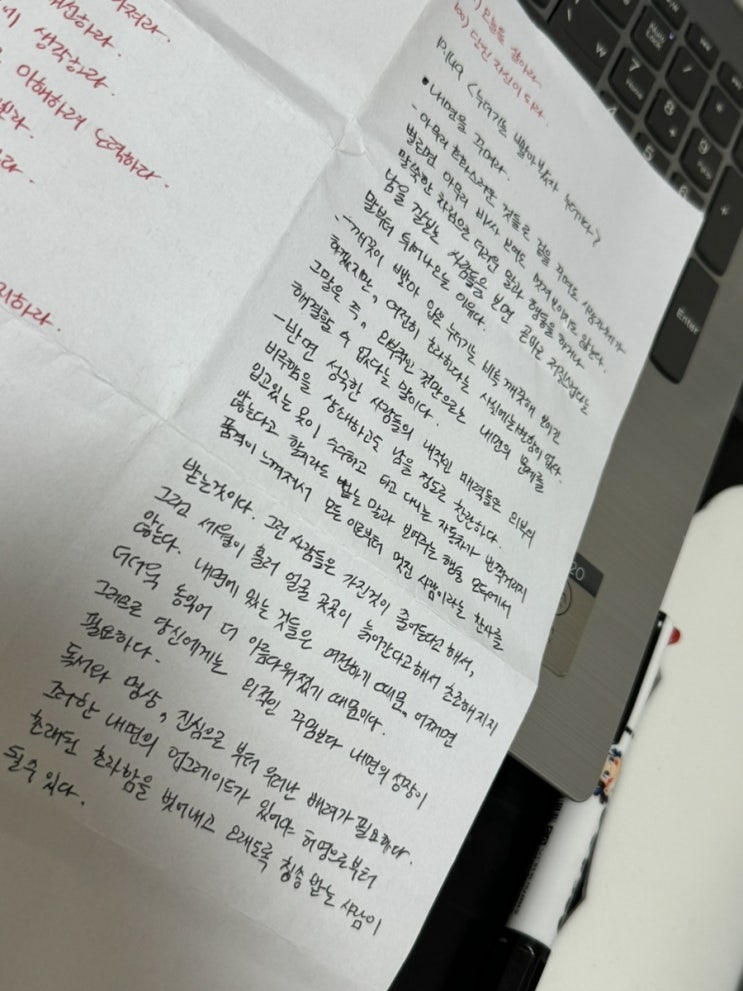 생각하라.
이해하려 노력하라.
오늘을 살아라
당신 자신이 되라.
p.149 <누더기는 빨아봤자 누더기다>
• 내면을 꾸며라.
- 아무리 호화스러운 것들로 겉을 꾸며도 사용자체가
별로면 아무리 비싸 보여도 멋져보이지는 않는다.
말쑥한 차림으로 더러운 말과 행동을 하거나
남을 깔보는 사람들을 보면 곧바로 저질스럽다는
말부터 튀어나오는 이유다.
- 깨끗이 빨아 입은 누더기는 비록 깨끗해 보이긴
하겠지만, 여전히 초라하다는 사실에는 변함이 없다.
그말은 즉, 외부적인 것만으로는 내면의 문제를
해결할 수 없다는 말이다.
- 반면 성숙한 사람들의 내적인 매력들은 외부의
비루함을 상쇄하고도 남을 정도로 찬란하다.
입고있는 옷이 수수하고 타고 다니는 자동차가 번쩍거리지
않는다고 할지라도 뱉는 말과 보여주는 행동 모두에서
품격이 느껴져서 모든 이로부터 멋진 사람이라는 찬사를
받는것이다. 그런 사람들은 가진것이 줄어든다고 해서,
그리고 세월이 흘러 얼굴 곳곳이 늙어간다고해서 초조해지지
않는다. 내면에 있는 것들은 여전하기 때문, 어쩌면
더더욱 농익어 더 아름다워졌기 때문이다.
그러므로 당신에게는 외적인 꾸밈보다 내면의 성장이
필요하다.
독서와 명상, 진심으로 부터 우러난 배려가 필요하다.
그러한 내면의 업그레이드가 있어야 허영으로부터
초래된 초라함을 벗어내고 오래도록 칭송 받는 사람이
될수 있다.
Num Lock
7
Home
8
9
PgUp
4
5
6
Enter